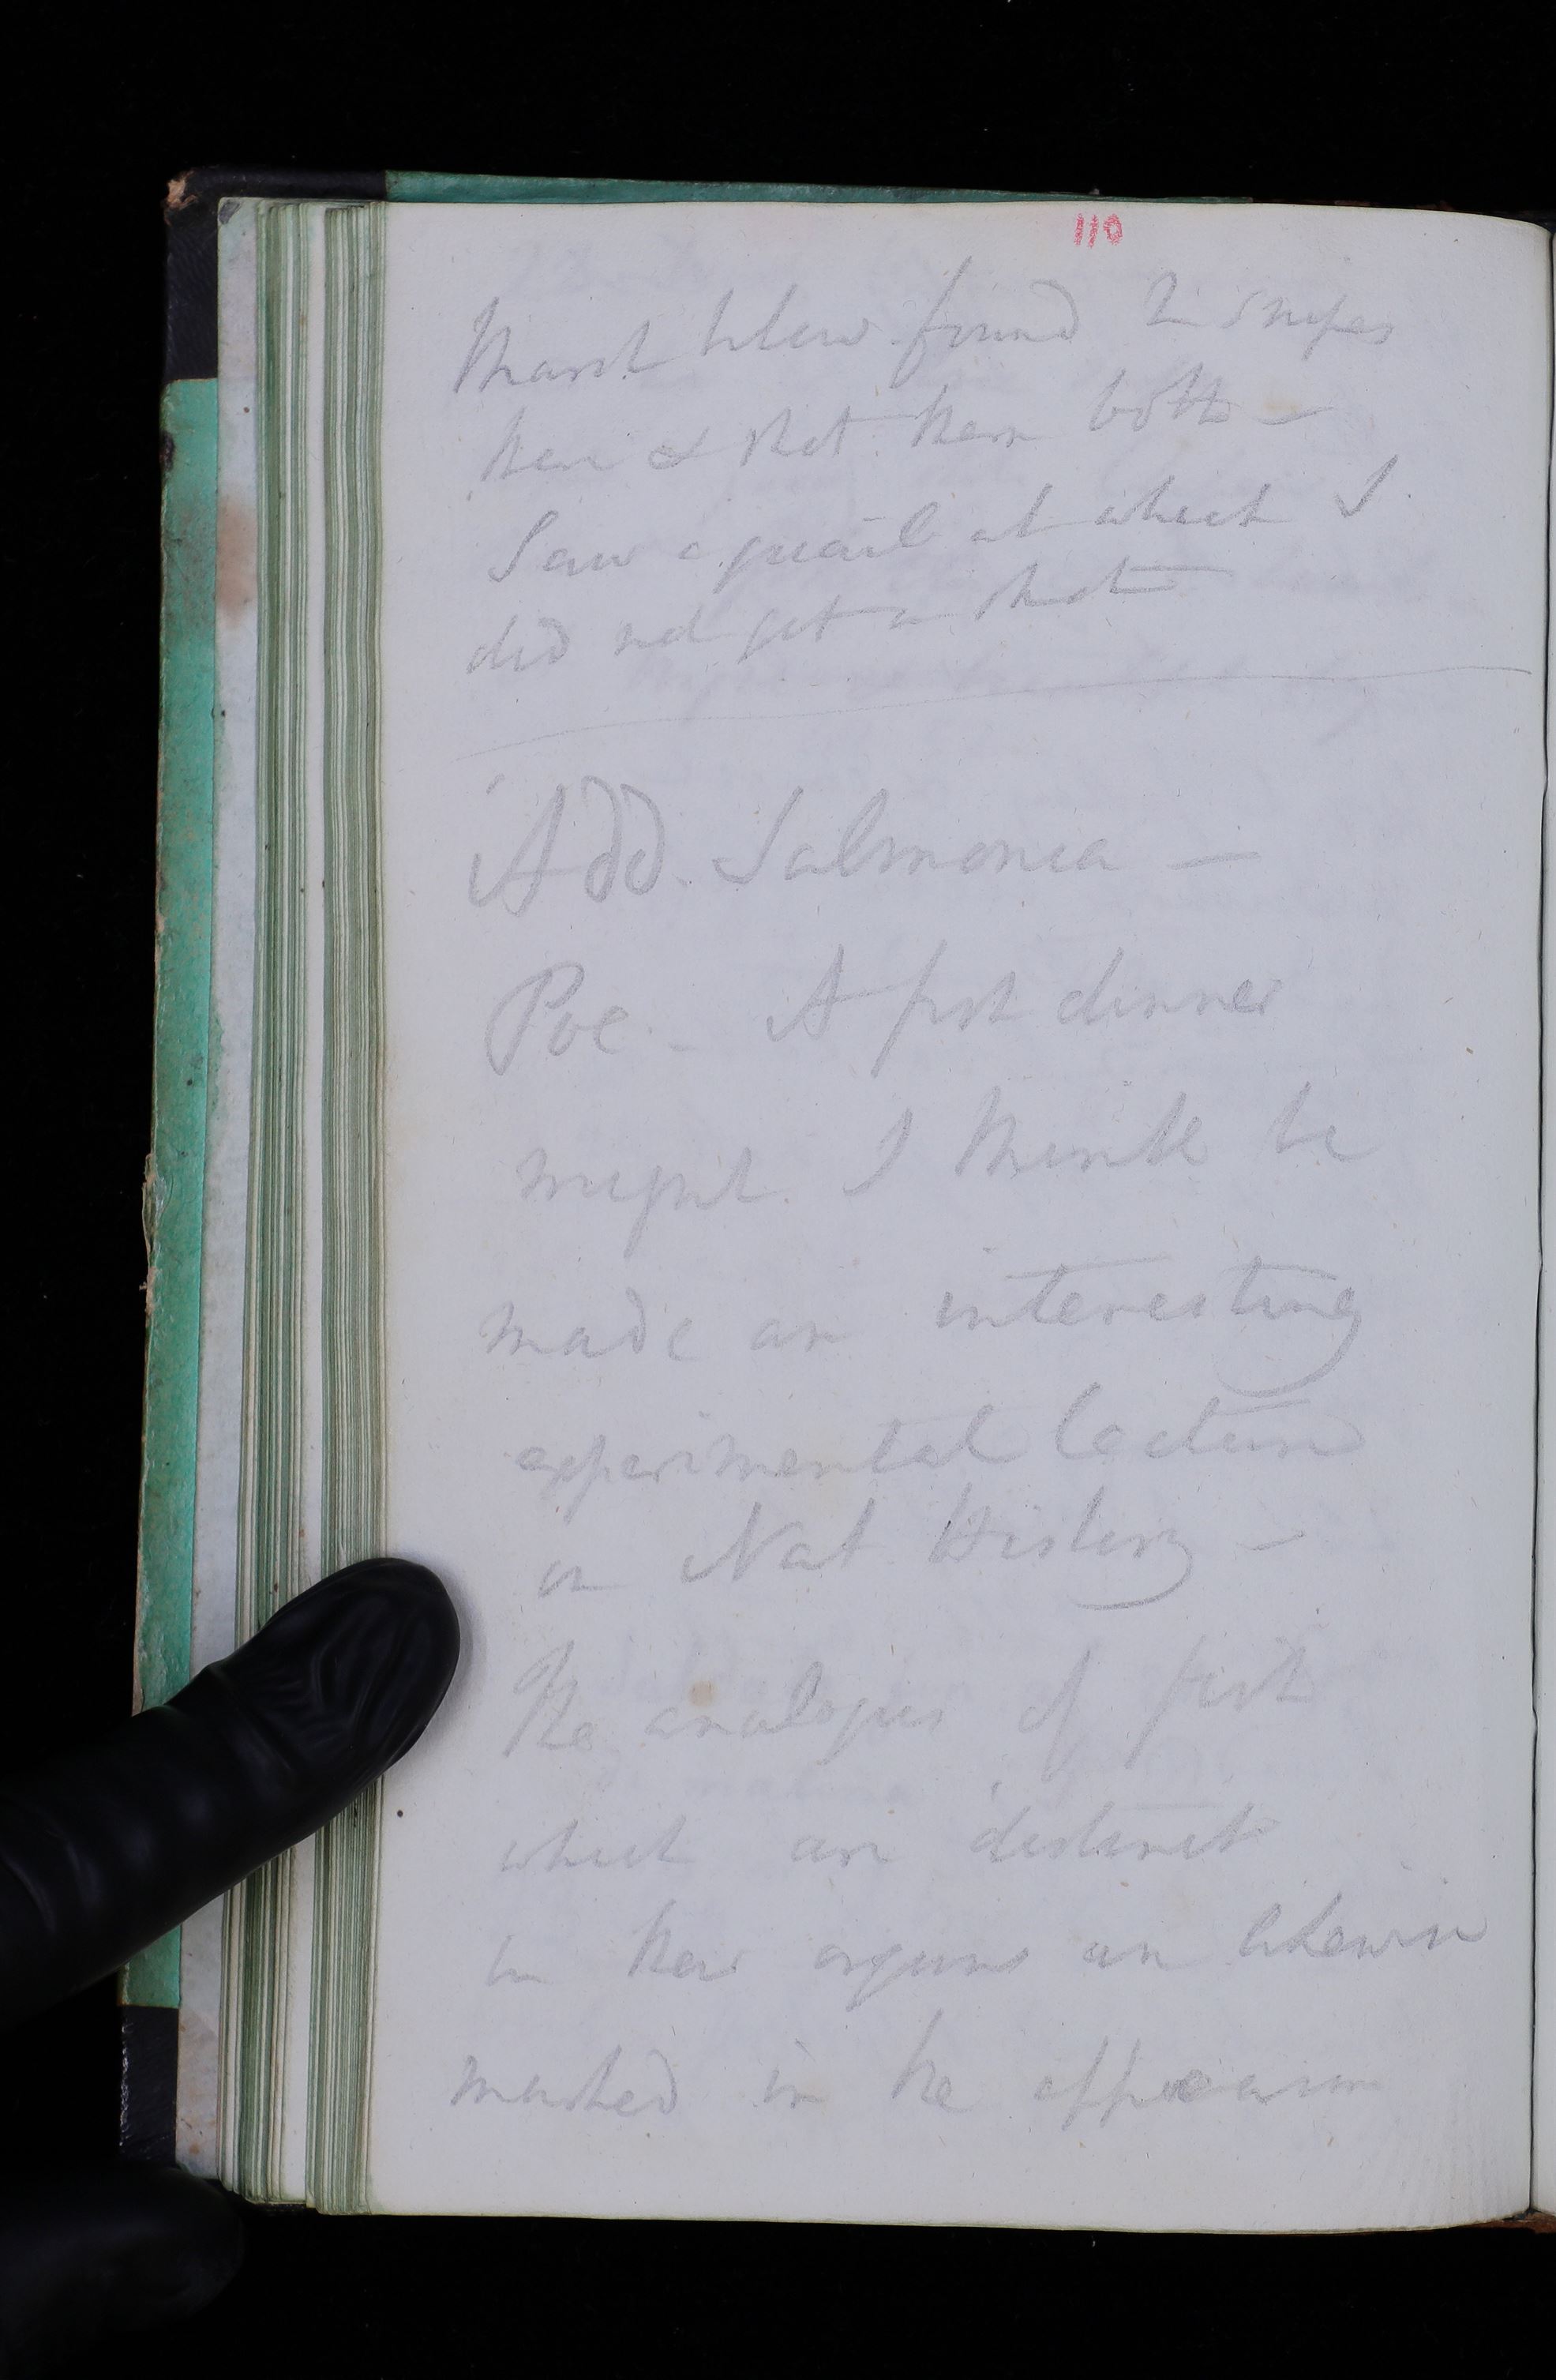 110
Marsh below found 2 snipes
there & shot them both –
Saw a quail at which I
did not get a shot
Add. Salmonia –
Poe. – A fish dinner
might I think be
made an interesting
experimental lecture
on Nat History –
The analogies of fish
which are distinct
in their organs are likewise
marked in the appearance